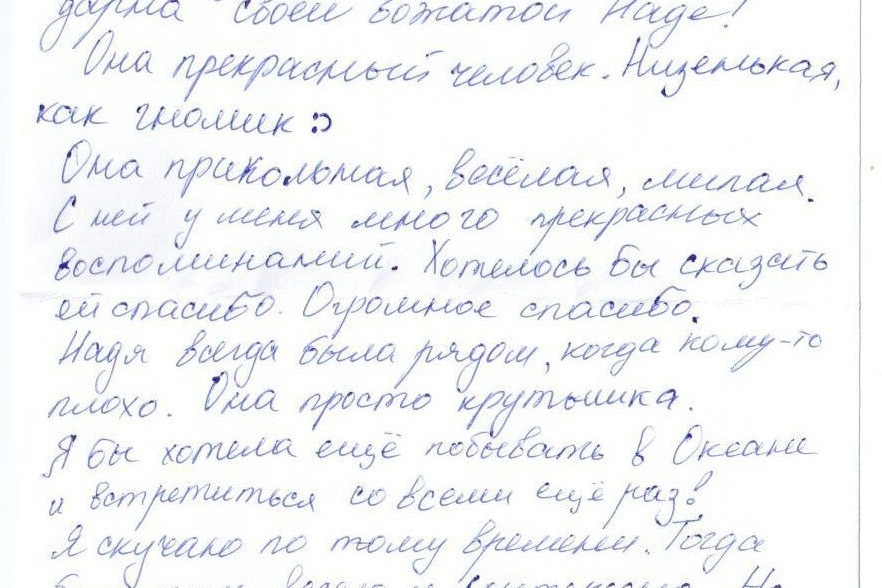 своей вожатой Наде!
Она прекрасный человек. Низенькая,
как гномик :)
Она прикольная, весёлая, милая.
С ней у меня много прекрасных
воспоминаний. Хотелось бы сказать
ей спасибо. Огромное спасибо.
Надя всегда была рядом, когда кому-то
плохо. Она просто крутышка.
Я бы хотела ещё побывать в Океане
и встретиться со всеми ещё раз!
Я скучаю по тому времени. Тогда